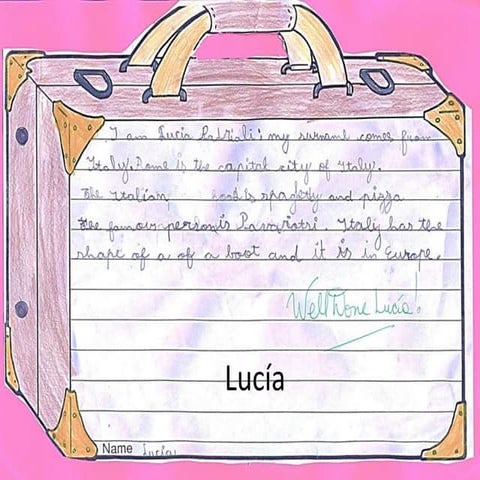 I am Lucía my surname comes from
Italy. Rome is the capital city of Italy.
The Italian food is spagetty and pizza
The famous person is Italy has the
shape of a of a boot and it is in Europe.
Well Done Lucía!
Lucía
Name Lucía